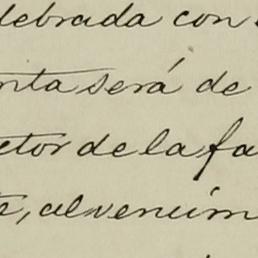 lebrada con
nta será de
ctor de la fa
te, al venim